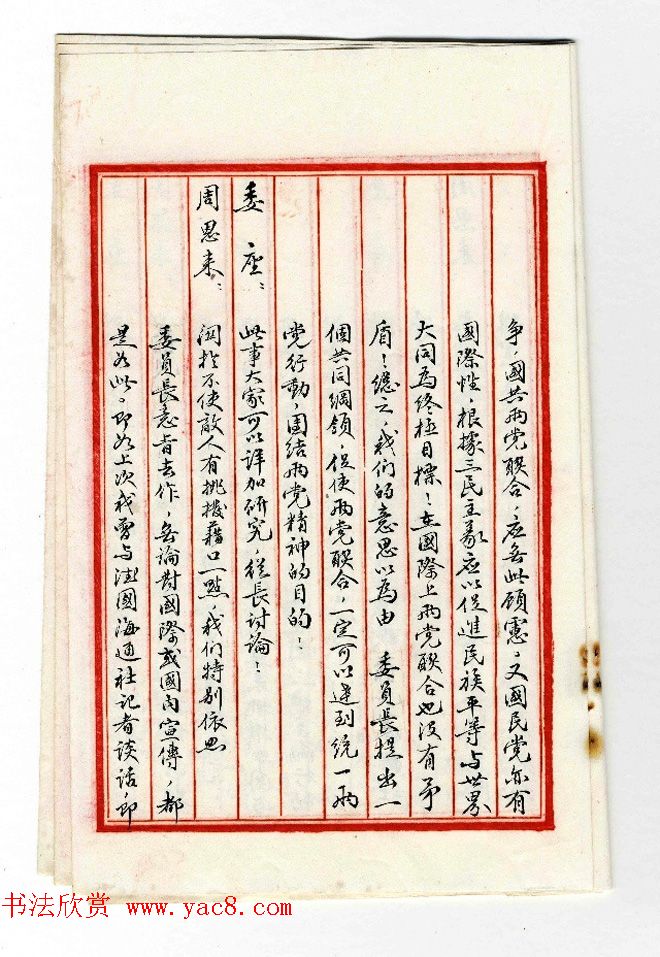 争，國共兩党联合，应無此顾慮。又國民党亦有
國際性，根據三民主义应以促進民族平等与世界
大同為終極目標！在國際上兩党联合也没有矛
盾！總之，我们的意思以為由　委員長提出一
個共同綱领，促使兩党联合，一定可以達到统一兩
党行動，团结兩党精神的目的！
委　座：此事大家可以详加研究，從長讨論！
周恩来：関於不使敌人有挑拨藉口一點，我们特别依照
委員長意旨去作，無論對國際或國内宣傳，都
是如此。即如上次我曾与德國海通社记者談话，即
书法欣赏 www.yac8.com